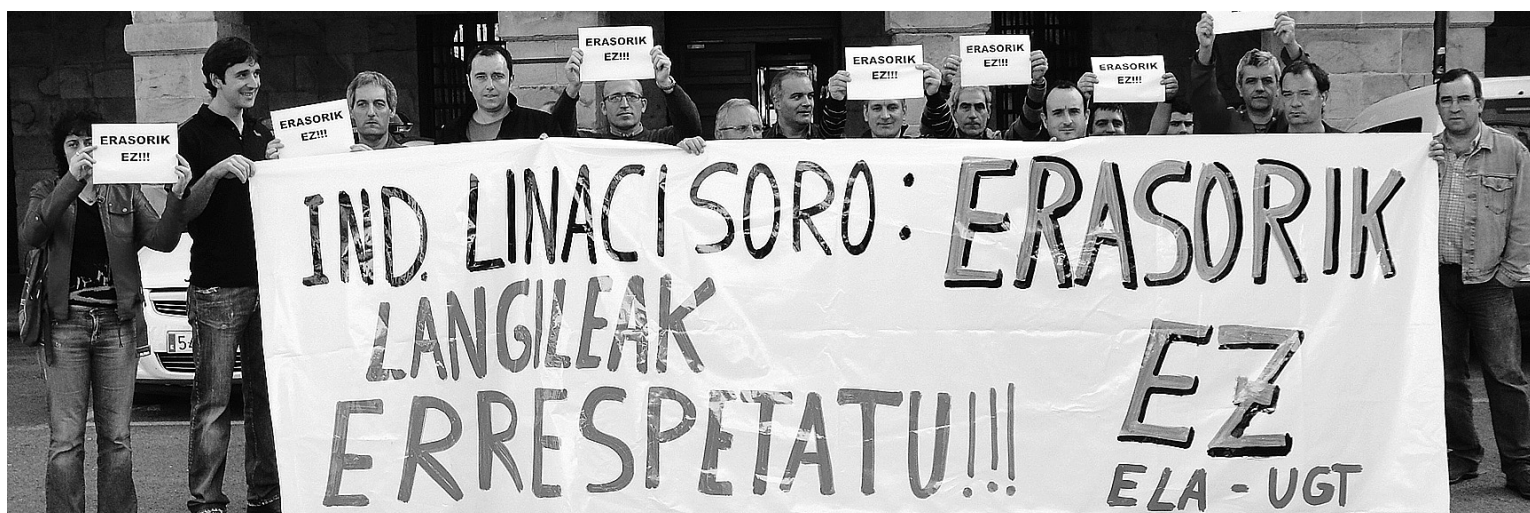 ERASORIK
EZ!!!
ERASORIK
EZ!!!
ERASORIK
EZ!!!
ERASORIK
EZ!!!
ERASORIK
EZ!!!
ERASORIK
EZ!!!
IND. LINACISORO: ERASORIK
LANGILEAK
ERRESPETATU!!!
EZ
ELA - UGT